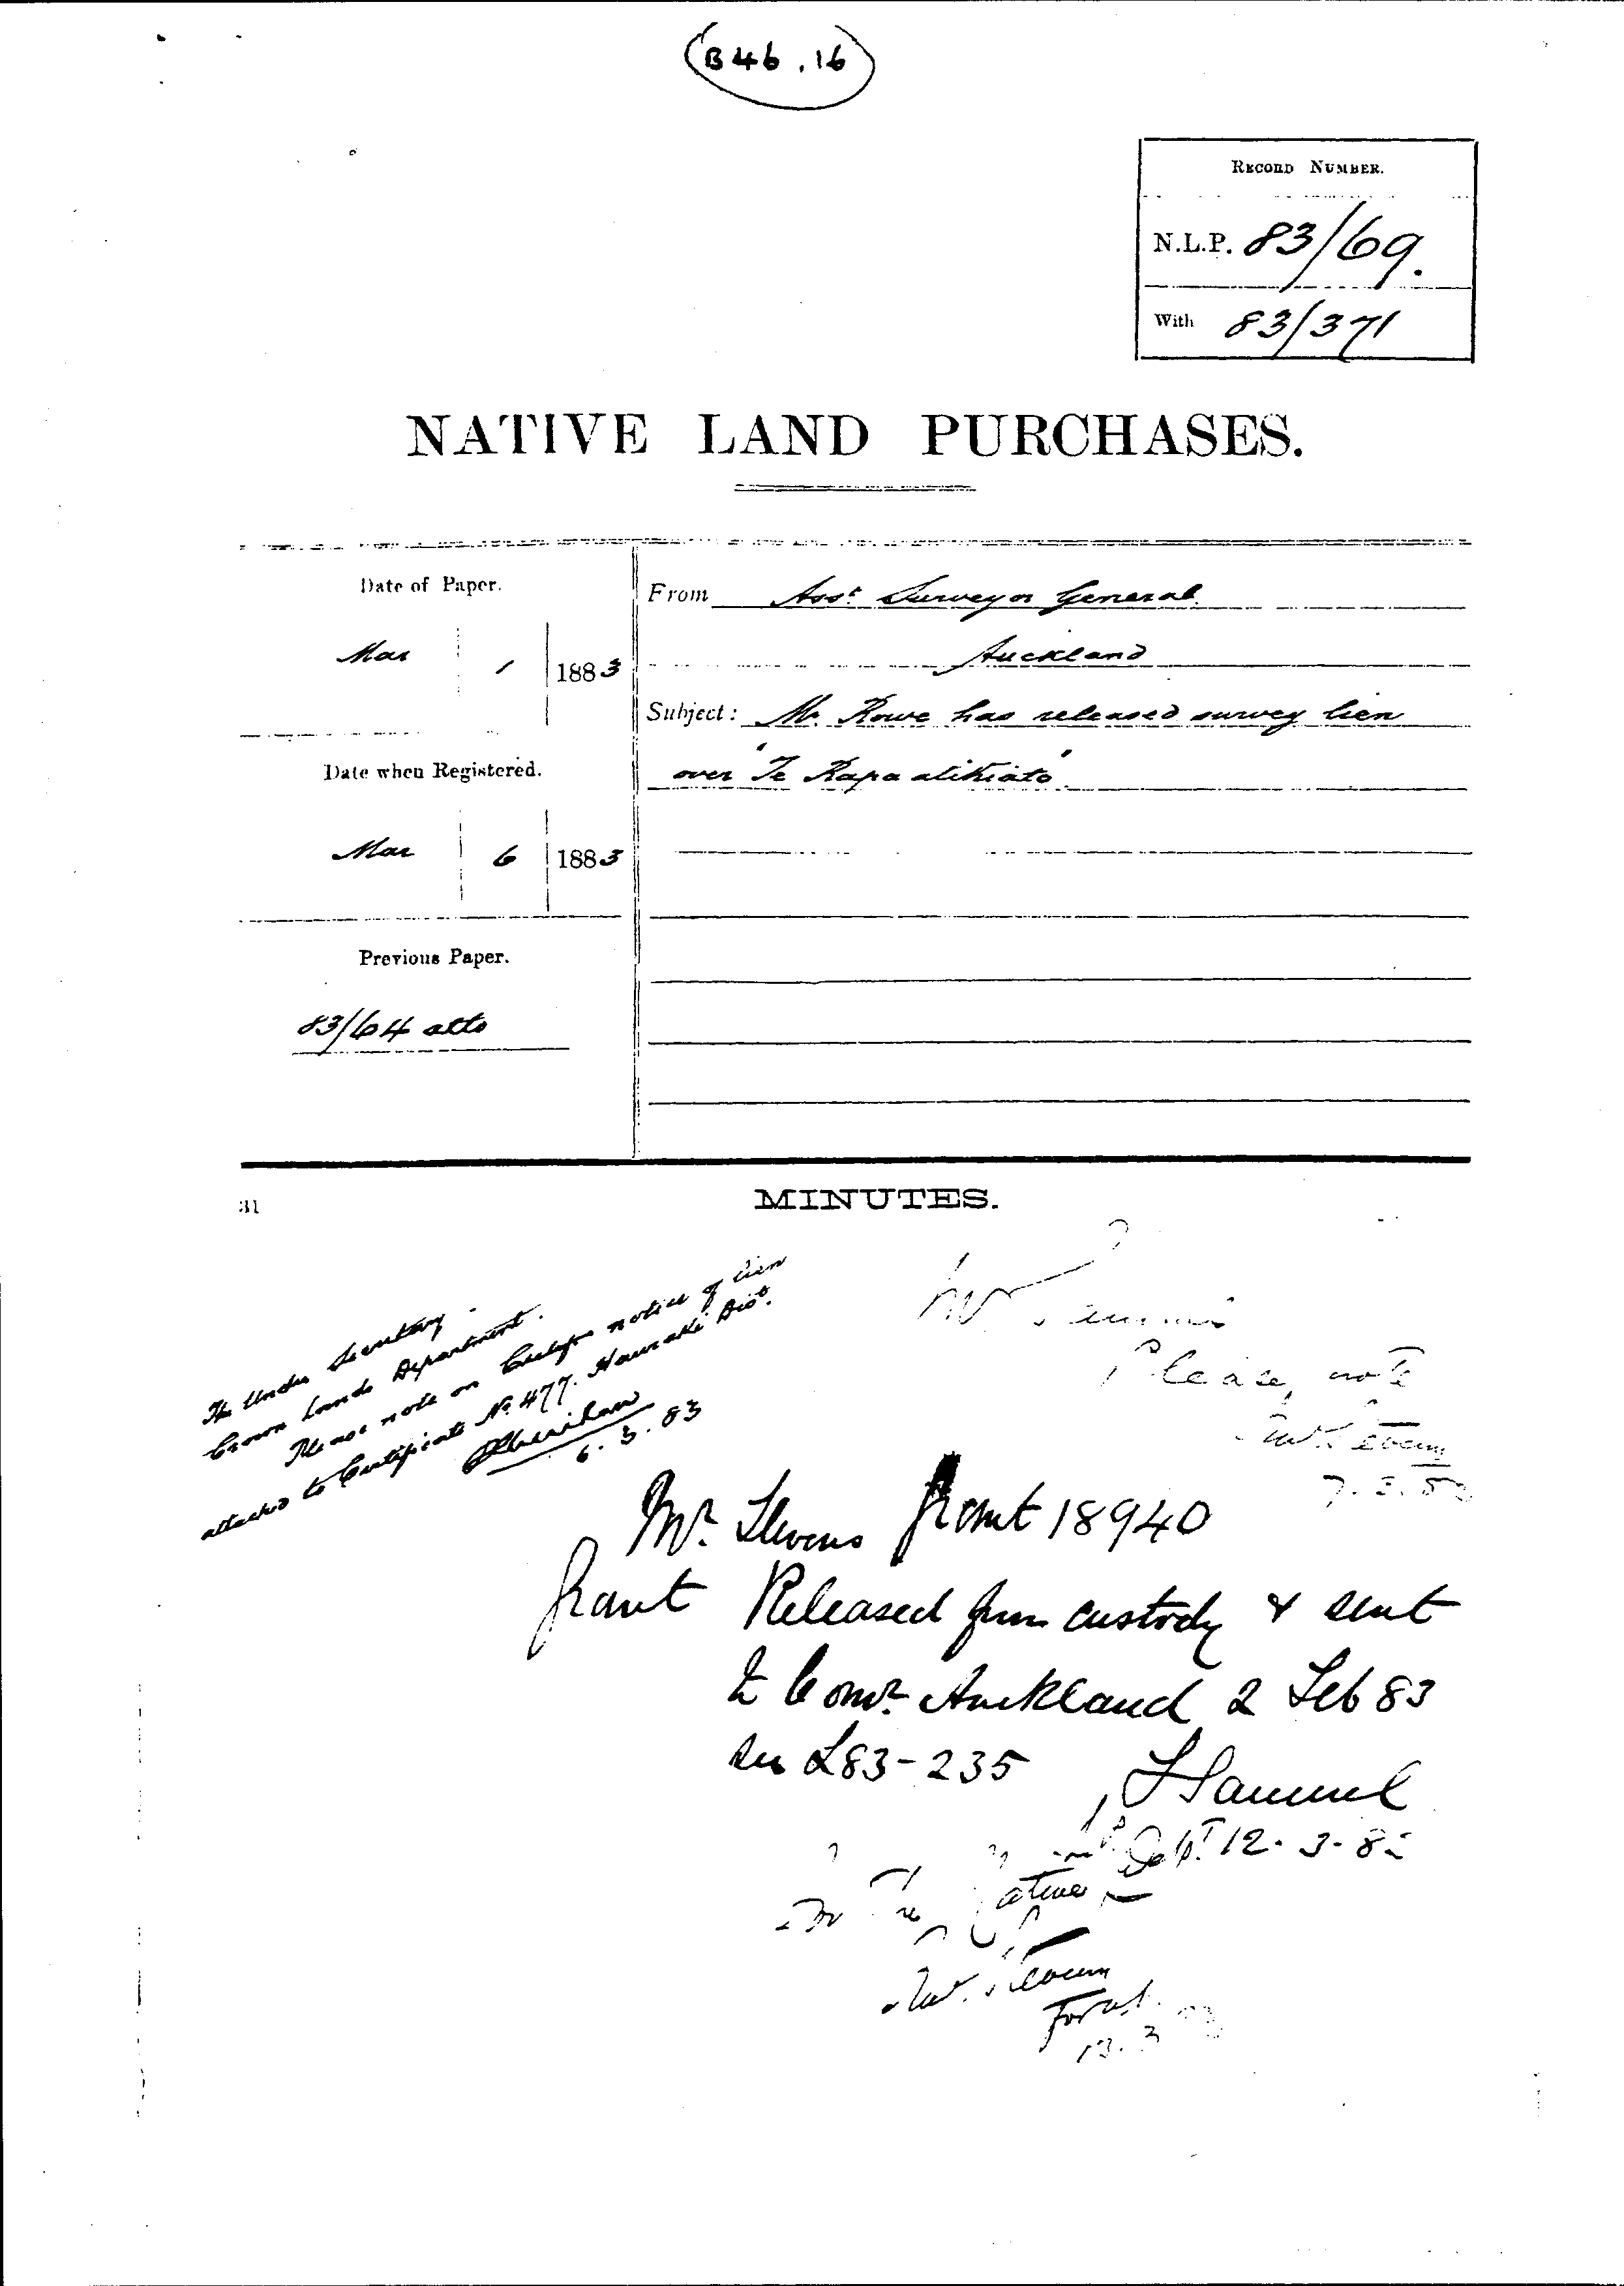 B46.16
RECORD NUMBER.
N.L.P. 83/69.
With 83/371
NATIVE LAND PURCHASES.
Date of Paper.
Mar 1 1883
Date when Registered.
Mar 6 1883
Previous Paper.
83/64 atto
From Asst Surveyor General
Auckland
Subject: Mr. Rowe has released survey lien
over "Te Kapa atikiato"
31
MINUTES.
The Under Secretary
Crown Lands Department.
Please note on notice of lien
attached to Certificate No. 477. Hauraki Dist.
6.3.83
Mr
Please note
7.3.83
Mr. Stevens Grant 18940
Grant Released from custody & sent
to Comr. Auckland 2 Feb 83
see L83-235
12.3.83
13.3